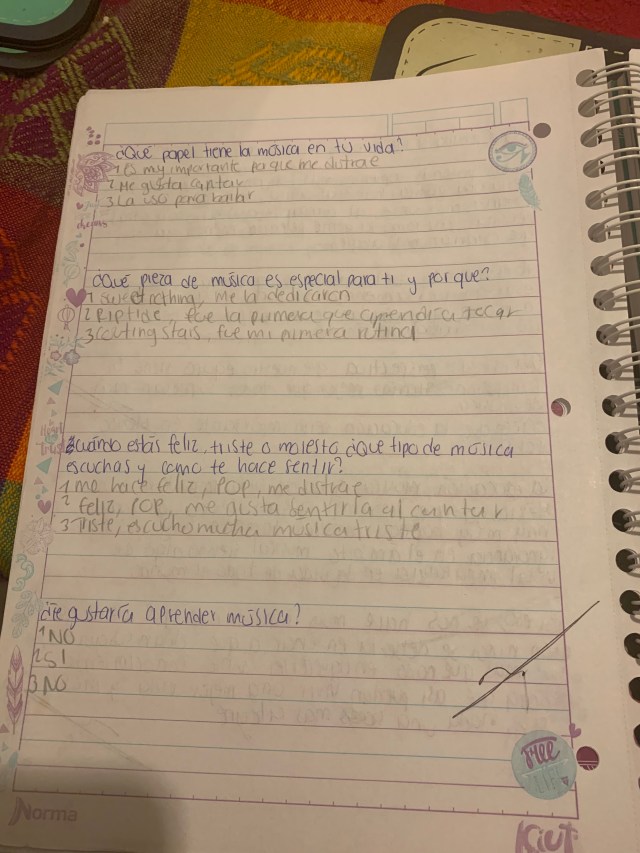 ¿Qué papel tiene la música en tu vida?
1 Es my importante pa que me distrae
2 Me gusta cantar
3 La uso para bailar
¿Qué pieza de música es especial para ti y por que?
1 sweet nothing, me la dedicaron
2 Riptide, fue la primera que aprendí a tocar
3 Counting stars, fue mi primera
¿Cuándo estás feliz, triste o molesto ¿Que tipo de música
escuchas y como te hace sentir?
1 me hace feliz, POP, me distrae
2 feliz, POP, me gusta sentirla al cantar
3 Triste, escucho mucha música triste
¿Te gustaría aprender música?
1 NO
2 SI
3 NO
FREE
Norma
Kiut